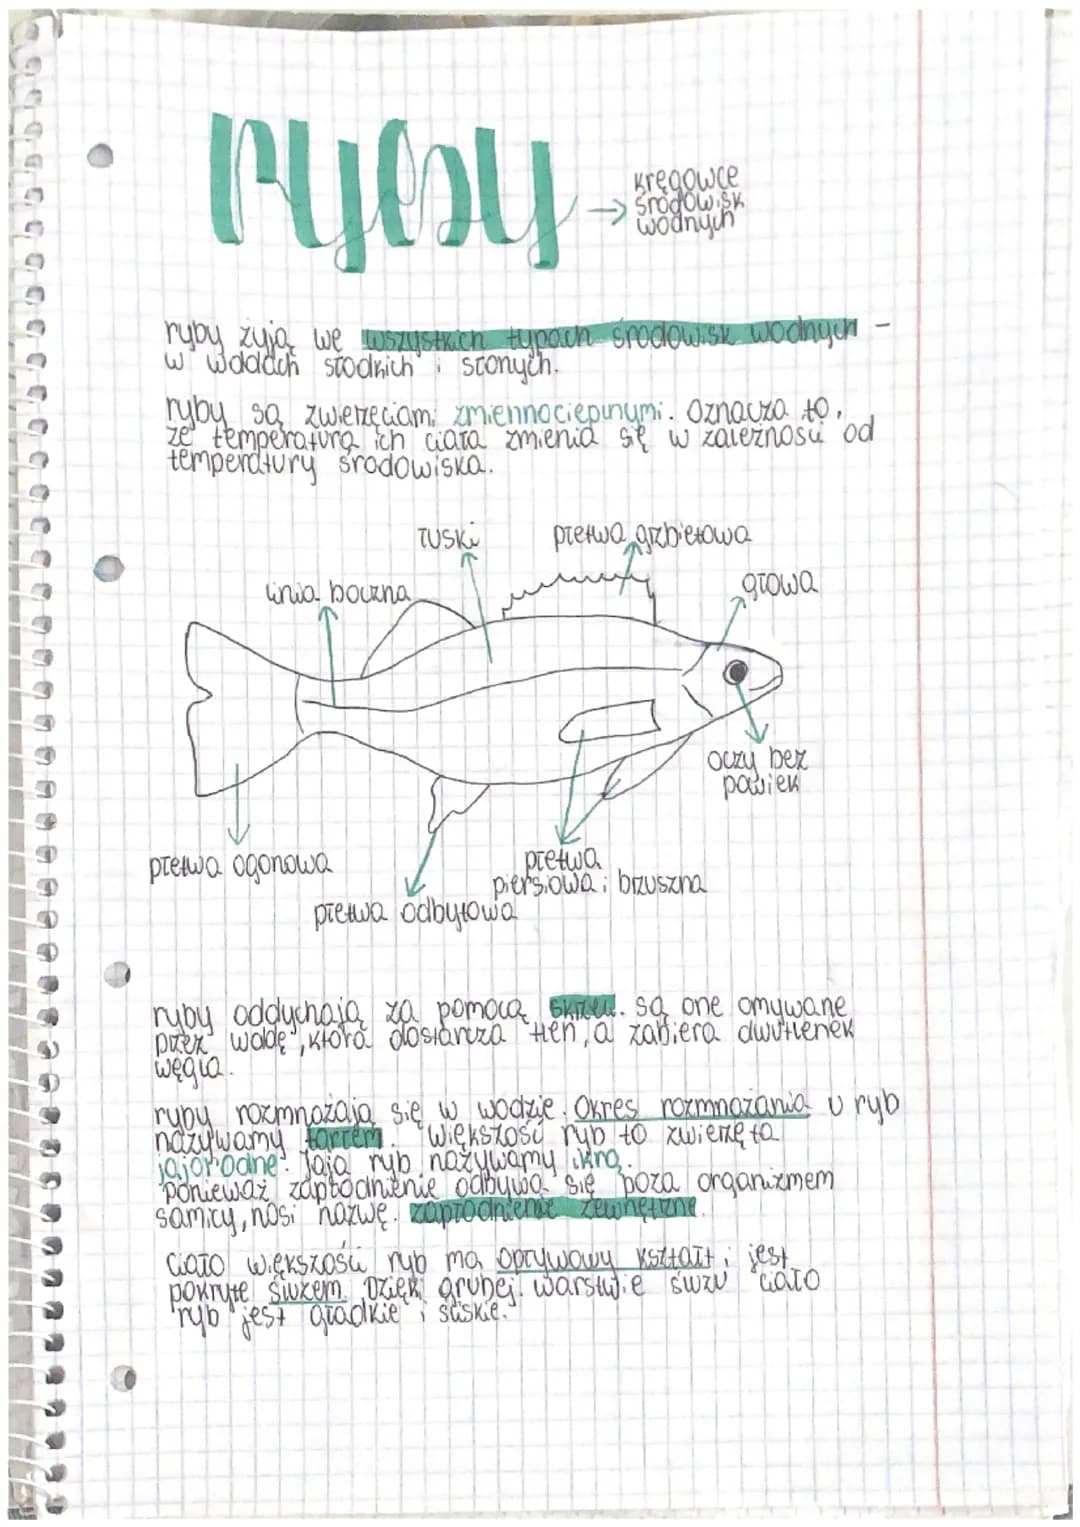 ryby
→ kręgowce
środowisk
wodnych
ryby żyją we wszystkich typach środowisk wodnych -
w wodach słodkich i słonych.
ryby są zwierzęciami zmiennocieplnymi. Oznacza to,
że temperatura ich ciała zmienia się w zależności od
temperatury środowiska.
łuski
płetwa grzbietowa
linia boczna
głowa
oczy bez
powiek
płetwa ogonowa
płetwa
piersiowa i brzuszna
płetwa odbytowa
ryby oddychają za pomocą skrzel. są one omywane
przez wodę, która dostarcza tlen, a zabiera dwutlenek
węgla.
ryby rozmnażają się w wodzie. Okres rozmnażania u ryb
nazywamy tarłem. Większość ryb to zwierzęta
jajorodne. Jaja ryb nazywamy ikrą.
Ponieważ zapłodnienie odbywa się poza organizmem
samicy, nosi nazwę zapłodnienie zewnętrzne.
Ciało większości ryb ma opływowy kształt i jest
pokryte śluzem. Dzięki grubej warstwie śluzu ciało
ryb jest gładkie i śliskie.